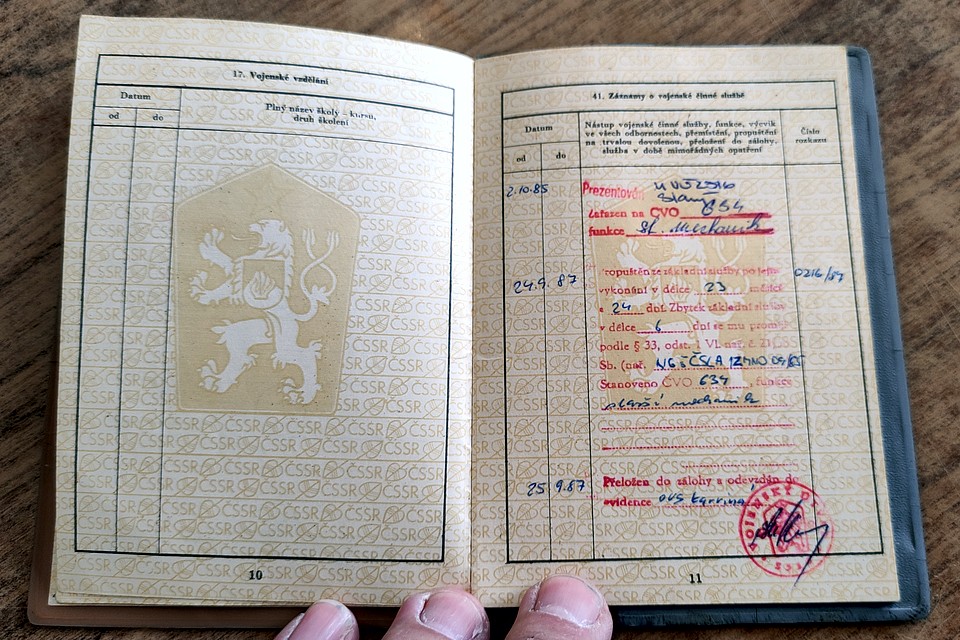 17. Vojenské vzdělání
Datum
od do
Plný název školy - kursu,
druh školení
10
41. Záznamy o vojenské činné službě
Datum
od do
Nástup vojenské činné služby, funkce, výcvik
ve všech odbornostech, přemístění, propuštění
na trvalou dovolenou, přeložení do zálohy,
služba v době mimořádných opatření
Číslo
rozkazu
2.10.85 Prezentován u VÚ 2516
Zařazen na ČVO 654
funkce St. mechanik
24.9.87 ropuštěn ze základní služby po jejím 0216/87
vykonání v délce 23 měsíců
a 24 dní. Zbytek základní služby
v délce 6 dní se mu promíjí
podle § 33, odst. 1 Vl. nař. č.
Sb. (nař. NGŠ ČSLA
Stanoveno ČVO 634 funkce
starší mechanik
25 9.87 Přeložen do zálohy a odevzdán do
evidence OVS Karviná
VOJENSKÝ
11